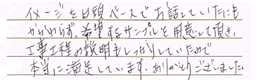 イメージを口頭ベースでお話していたにも
かかわらず、希望するサンプルを用意して頂き、
工事工程の説明もしっかりしていたので
本当に満足しています。ありがとうございました